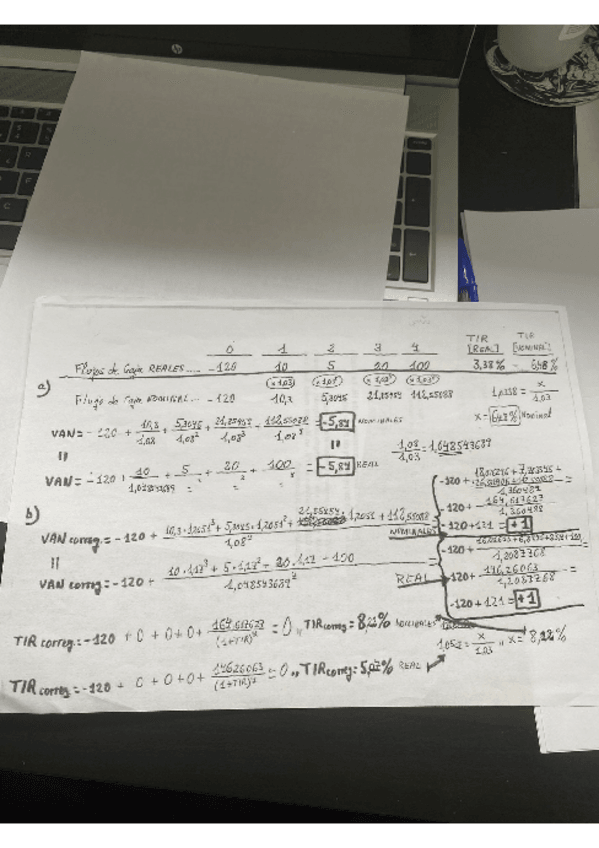 hp
0 1 2 3 4 TIR [REAL] TIR [NOMINAL]
Flujos de Caja REALES..... -120 10 5 20 100 3,38% 6,48%
a) (x1,03) (x1,03²) (x1,03³) (x1,03⁴)
Flujo de Caja NOMINAL... -120 10,3 5,3045 21,85454 112,55088 1,0338 = x/1,03
VAN = -120 + 10,3/1,08 + 5,3045/1,08² + 21,85454/1,08³ + 112,55088/1,08⁴ = -5,84 NOMINALES x = 6,48% Nominal
= = 1,08/1,03 = 1,048543689
VAN = -120 + 10/1,048543689 + 5/" + 20/" + 100/" = -5,84 REAL
b)
VAN correg. = -120 + (10,3·1,2051³ + 5,3045·1,2051² + 21,85454·1,2051 + 112,55088)/1,08² NOMINALES
=
VAN correg = -120 + (10·1,17³ + 5·1,17² + 20·1,17 - 100)/1,048543689² REAL
-120 + /1,360489 =
-120 + 164,617623/1,360488 =
-120 + 121 = +1
-120 + /1,2087768
-120 + 146,26063/1,2087768 =
-120 + 121 = +1
TIR correg. = -120 + 0 + 0 + 0 + 164,617623/(1+TIR)⁴ = 0 ,, TIR correg = 8,22% NOMINALES
1,051 = x/1,03 ,, x = 8,22%
TIR correg = -120 + 0 + 0 + 0 + 146,26063/(1+TIR)⁴ = 0 ,, TIR correg = 5,07% REAL